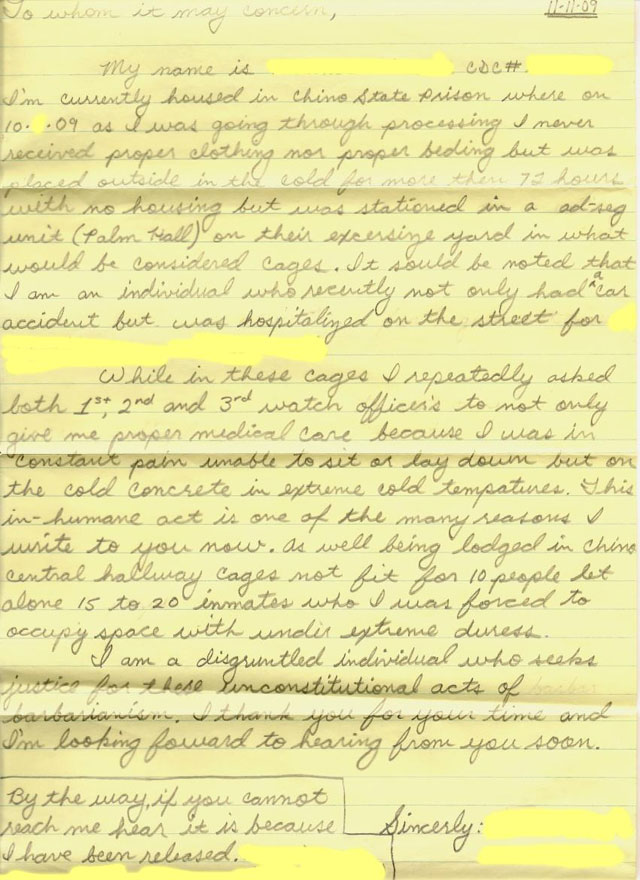 To whom it may concern,
11-11-09
My name is CDC#.
I'm currently housed in Chino State Prison where on
10- -09 as I was going through processing I never
received proper clothing nor proper beding but was
placed outside in the cold for more then 72 hours
with no housing but was stationed in a ad-seg
unit (Palm Hall) on their excersize yard in what
would be considered cages. It sould be noted that
I am an individual who recently not only had ^a car
accident but was hospitalized on the street for
While in these cages I repeatedly asked
both 1st, 2nd and 3rd watch officer's to not only
give me proper medical care because I was in
constant pain unable to sit or lay down but on
the cold concrete in extreme cold tempatures. This
in-humane act is one of the many reasons I
write to you now. As well being lodged in chino
central hallway cages not fit for 10 people let
alone 15 to 20 inmates who I was forced to
occupy space with undir extreme duress.
I am a disgruntled individual who seeks
justice for these unconstitutional acts of barbar
barbarianism. I thank you for your time and
I'm looking foward to hearing from you soon.
By the way, if you cannot
reach me hear it is because
I have been released.
Sincerly: